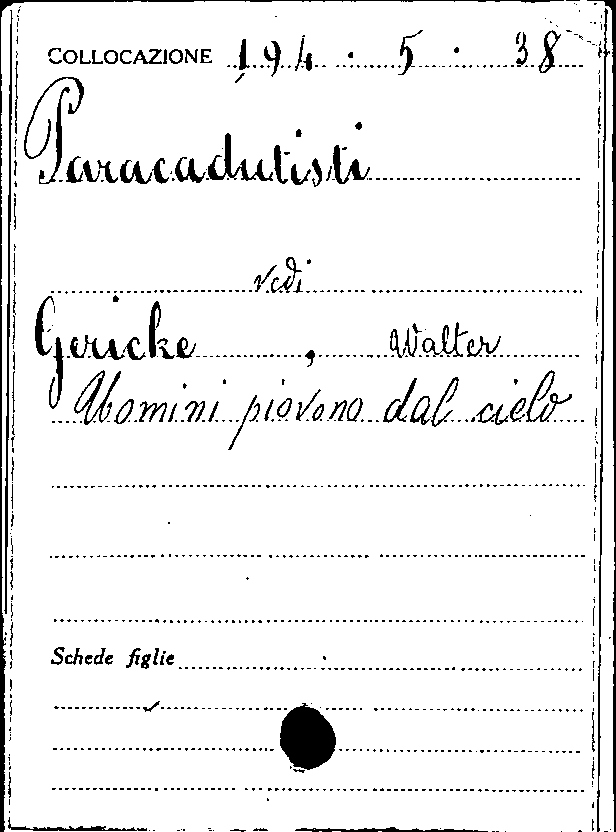 COLLOCAZIONE 194 . 5 . 38
Paracadutisti
vedi
Gericke , Walter
Uomini piovono dal cielo
Schede figlie